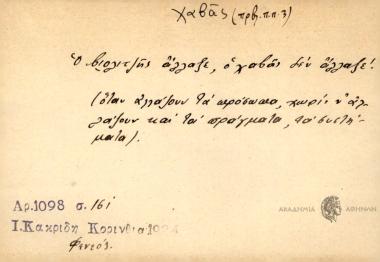 χαβᾶς (πρβλ. π.π. 3)
Ὁ βιολιτζῆς ἄλλαξε, ὁ χαβᾶς δὲν ἄλλαξε!
(ὅταν ἀλλάζουν τὰ πρόσωπα, χωρὶς ν' ἀλ-
λάζουν καὶ τὰ πράγματα, τὰ συστή-
ματα).
Ἀρ. 1098 σ. 161
Ι. Κακριδη Κορινθια
Φενεός.
ΑΚΑΔΗΜΙΑ ΑΘΗΝΩΝ